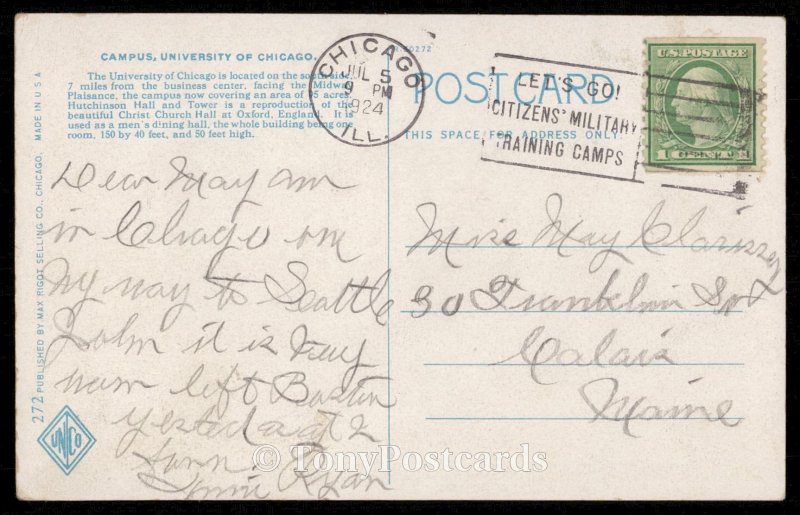 CAMPUS, UNIVERSITY OF CHICAGO.
The University of Chicago is located on the south side,
7 miles from the business center, facing the Midway
Plaisance, the campus now covering an area of 95 acres.
Hutchinson Hall and Tower is a reproduction of the
beautiful Christ Church Hall at Oxford, England. It is
used as a men's dining hall, the whole building being one
room, 150 by 40 feet, and 50 feet high.
CHICAGO
JUL 5
9 PM
1924
ILL.
POSTCARD
THIS SPACE FOR ADDRESS ONLY
LET'S GO!
CITIZENS' MILITARY
TRAINING CAMPS
U.S. POSTAGE
1 CENTS 1
272 PUBLISHED BY MAX RIGOT SELLING CO., CHICAGO. MADE IN U S A
UNCO
Dear May am
in Chicago on
my way to Seattle
it is very
warm left Boston
yesterday at 2
Ryan
Miss May
30 Franklin
Calais
Maine
© TonyPostcards